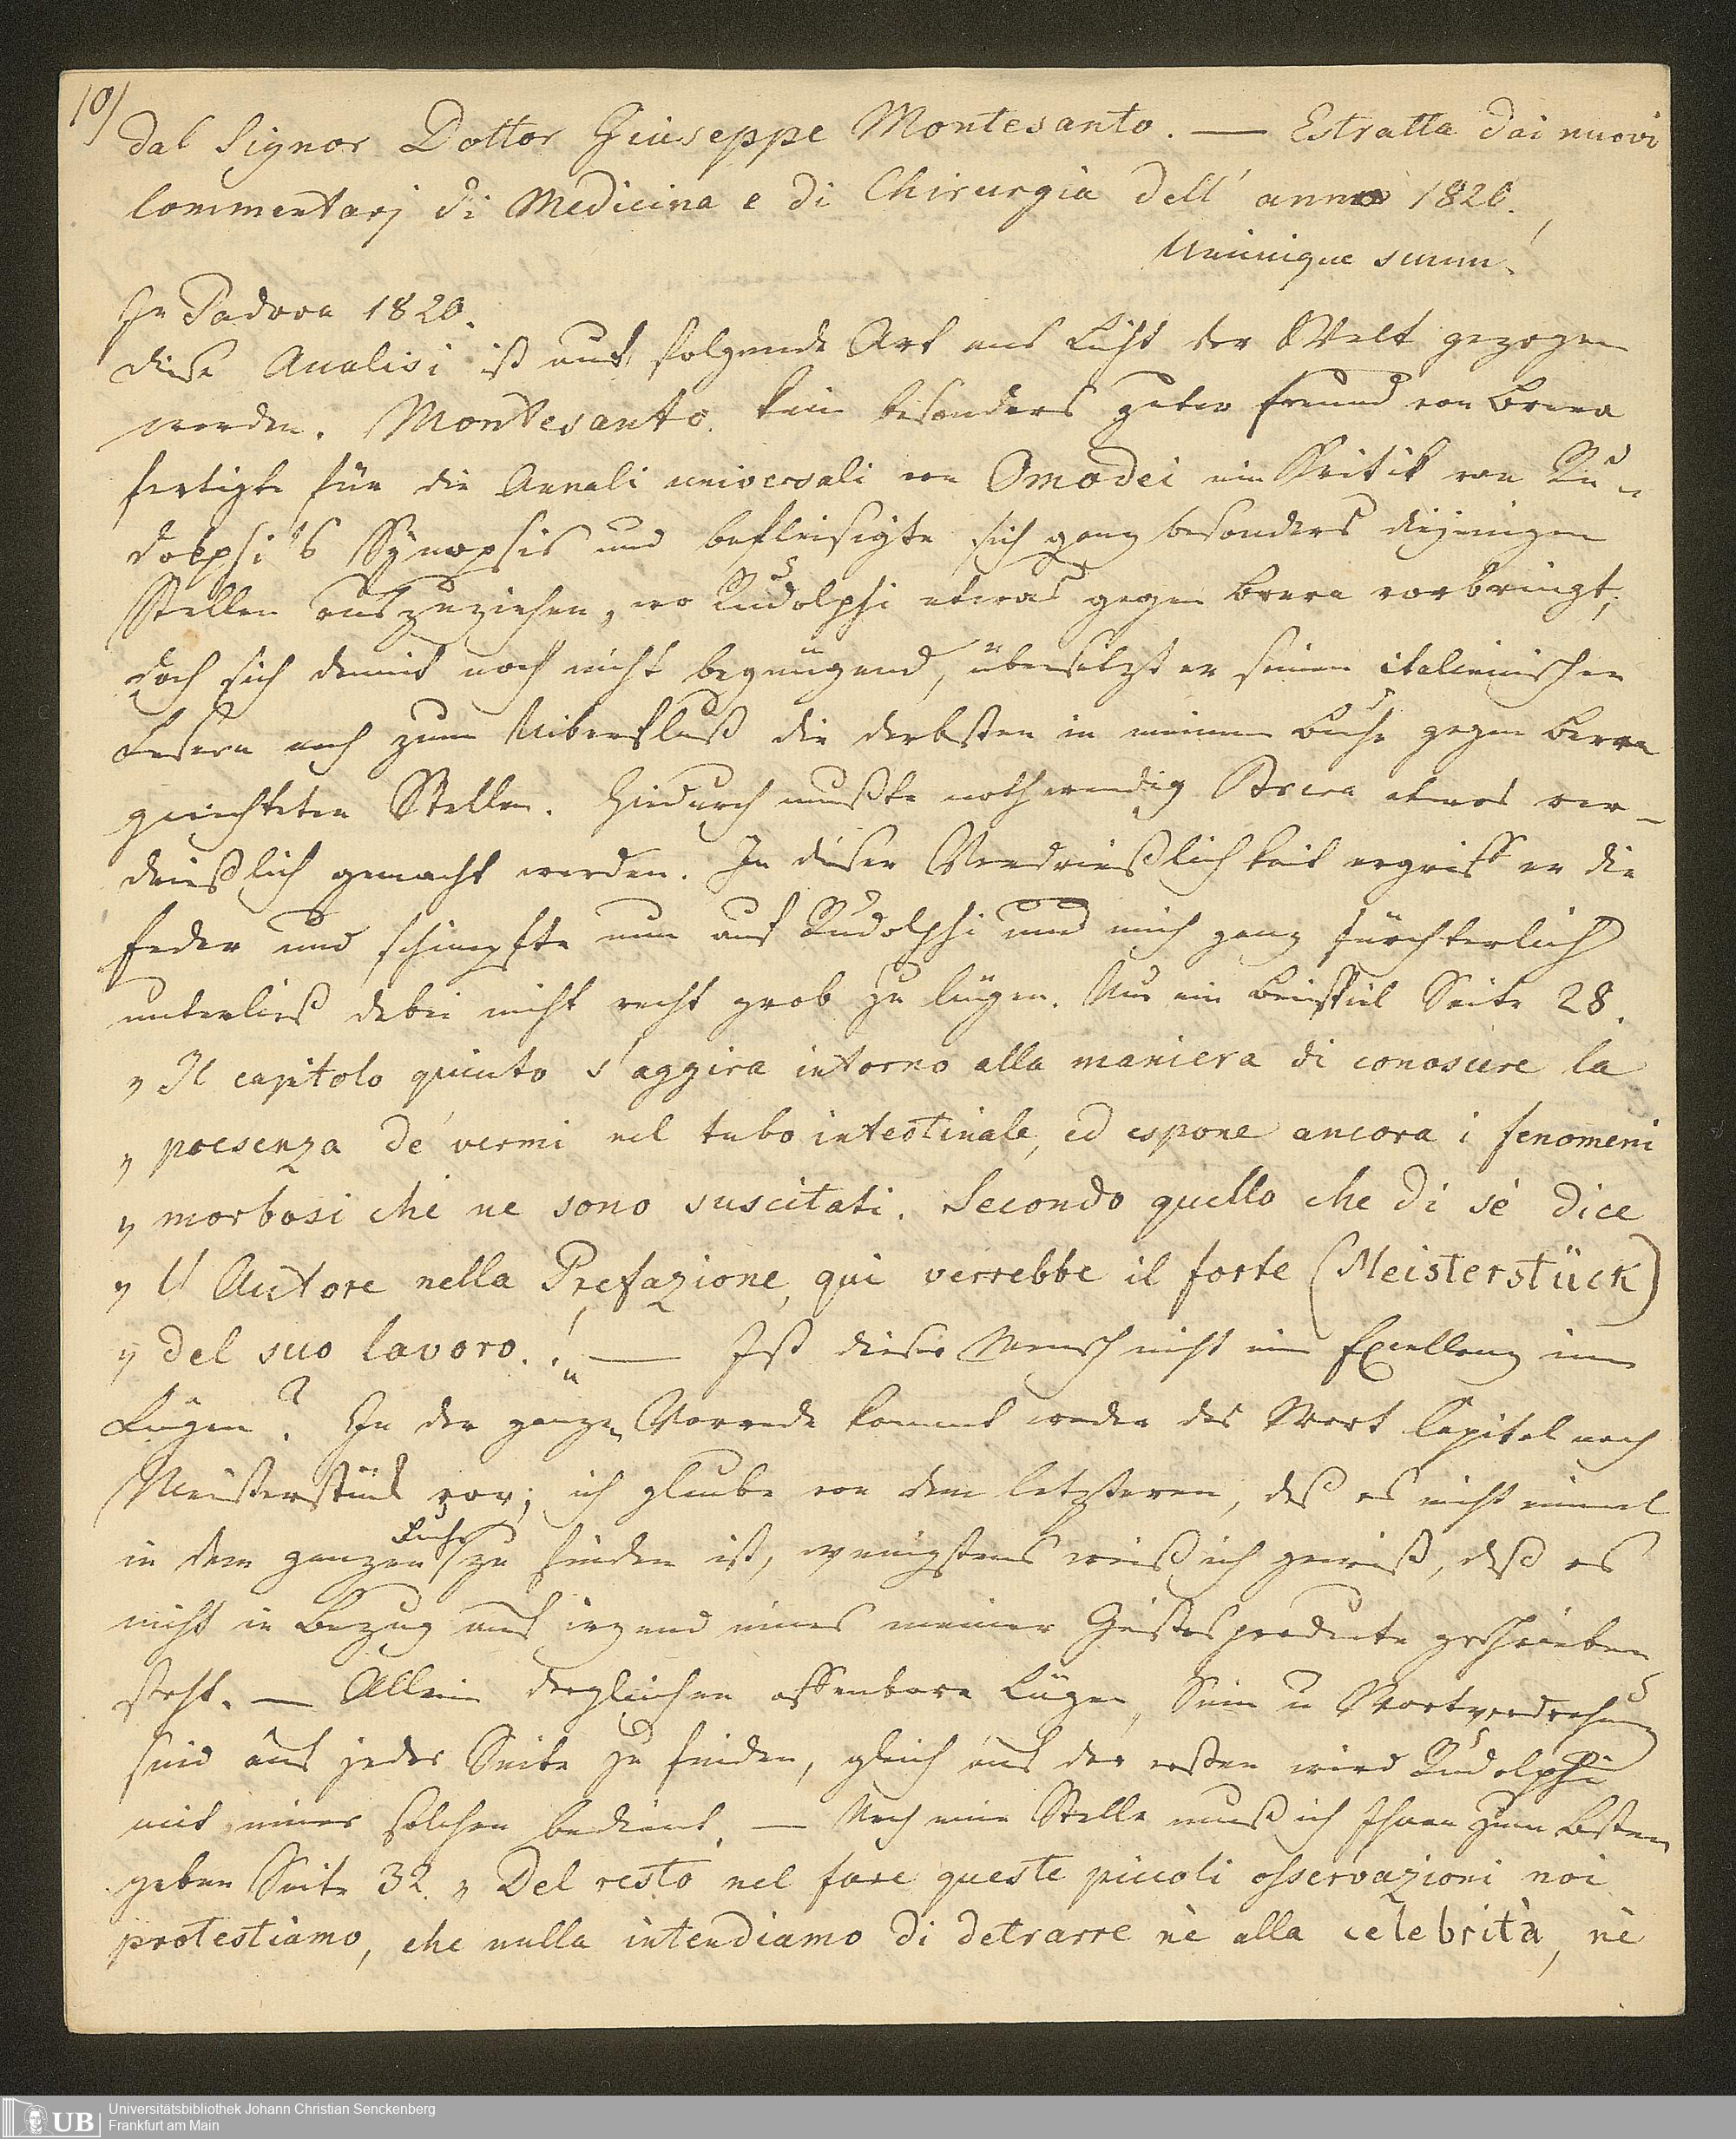 10)
dal Signor Dottor Giuseppe Montesanto. — Estratta dai nuovi
Commentarj di Medicina e di Chirurgia dell' anno 1820.
Unicuique suum.
In Padova 1820.
diese Analisi ist auf folgende Art ans Licht der Welt gezogen
worden. Montesanto kein besonders guter Freund von Brera
fertigte für die Annali universali von Omodei eine Kritik von Ru-
dolphi's Synopsis und befleisigte sich ganz besonders diejenigen
Stellen auszuziehen, wo Rudolphi etwas gegen Brera vorbringt;
doch sich damit noch nicht begnügend, übersetzt er seinen italienischen
Lesern noch zum Uiberfluß die derbsten in meinem Buche gegen Brera
gerichteten Stellen. Hiedurch mußte nothwendig Brera etwas ver-
drießlich gemacht werden. In dieser Verdrießlichkeit ergriff er die
Feder und schimpfte nun auf Rudolphi und mich ganz fürchterlich
unterließ dabei nicht recht grob zu lügen. Nur ein Beispiel Seite 28.
„ Il capitolo quinto s'aggira intorno alla maniera di conoscere la
„ presenza de' vermi nel tubo intestinale, ed espone ancora i fenomeni
„ morbosi che ne sono suscitati. Secondo quello che di sè dice
„ l' Autore nella Prefazione, qui verrebbe il forte (Meisterstück)
„ del suo lavoro.!“ — Ist dieser Mensch nicht eine Excellenz im
Lügen? In der ganzen Vorrede kommt weder das Wort Capitel noch
Meisterstück vor; ich glaube von dem letzteren, daß es nicht einmal
in dem ganzen Buche zu finden ist, wenigstens weiß ich gewiß, daß es
nicht in Bezug auf irgend eines meiner Geistesproducte geschrieben
steht. — Allein dergleichen offenbare Lügen, Sinn u Wortverdrehung
sind auf jeder Seite zu finden, gleich auf der ersten wird Rudolphi
mit einer solchen bedient. — Noch eine Stelle muß ich Ihnen zum Besten
geben Seite 32. „ Del resto nel fare queste piccoli osservazioni noi
protestiamo, che nulla intendiamo di detrarre nè alla celebrità, nè
Universitätsbibliothek Johann Christian Senckenberg
Frankfurt am Main
UB